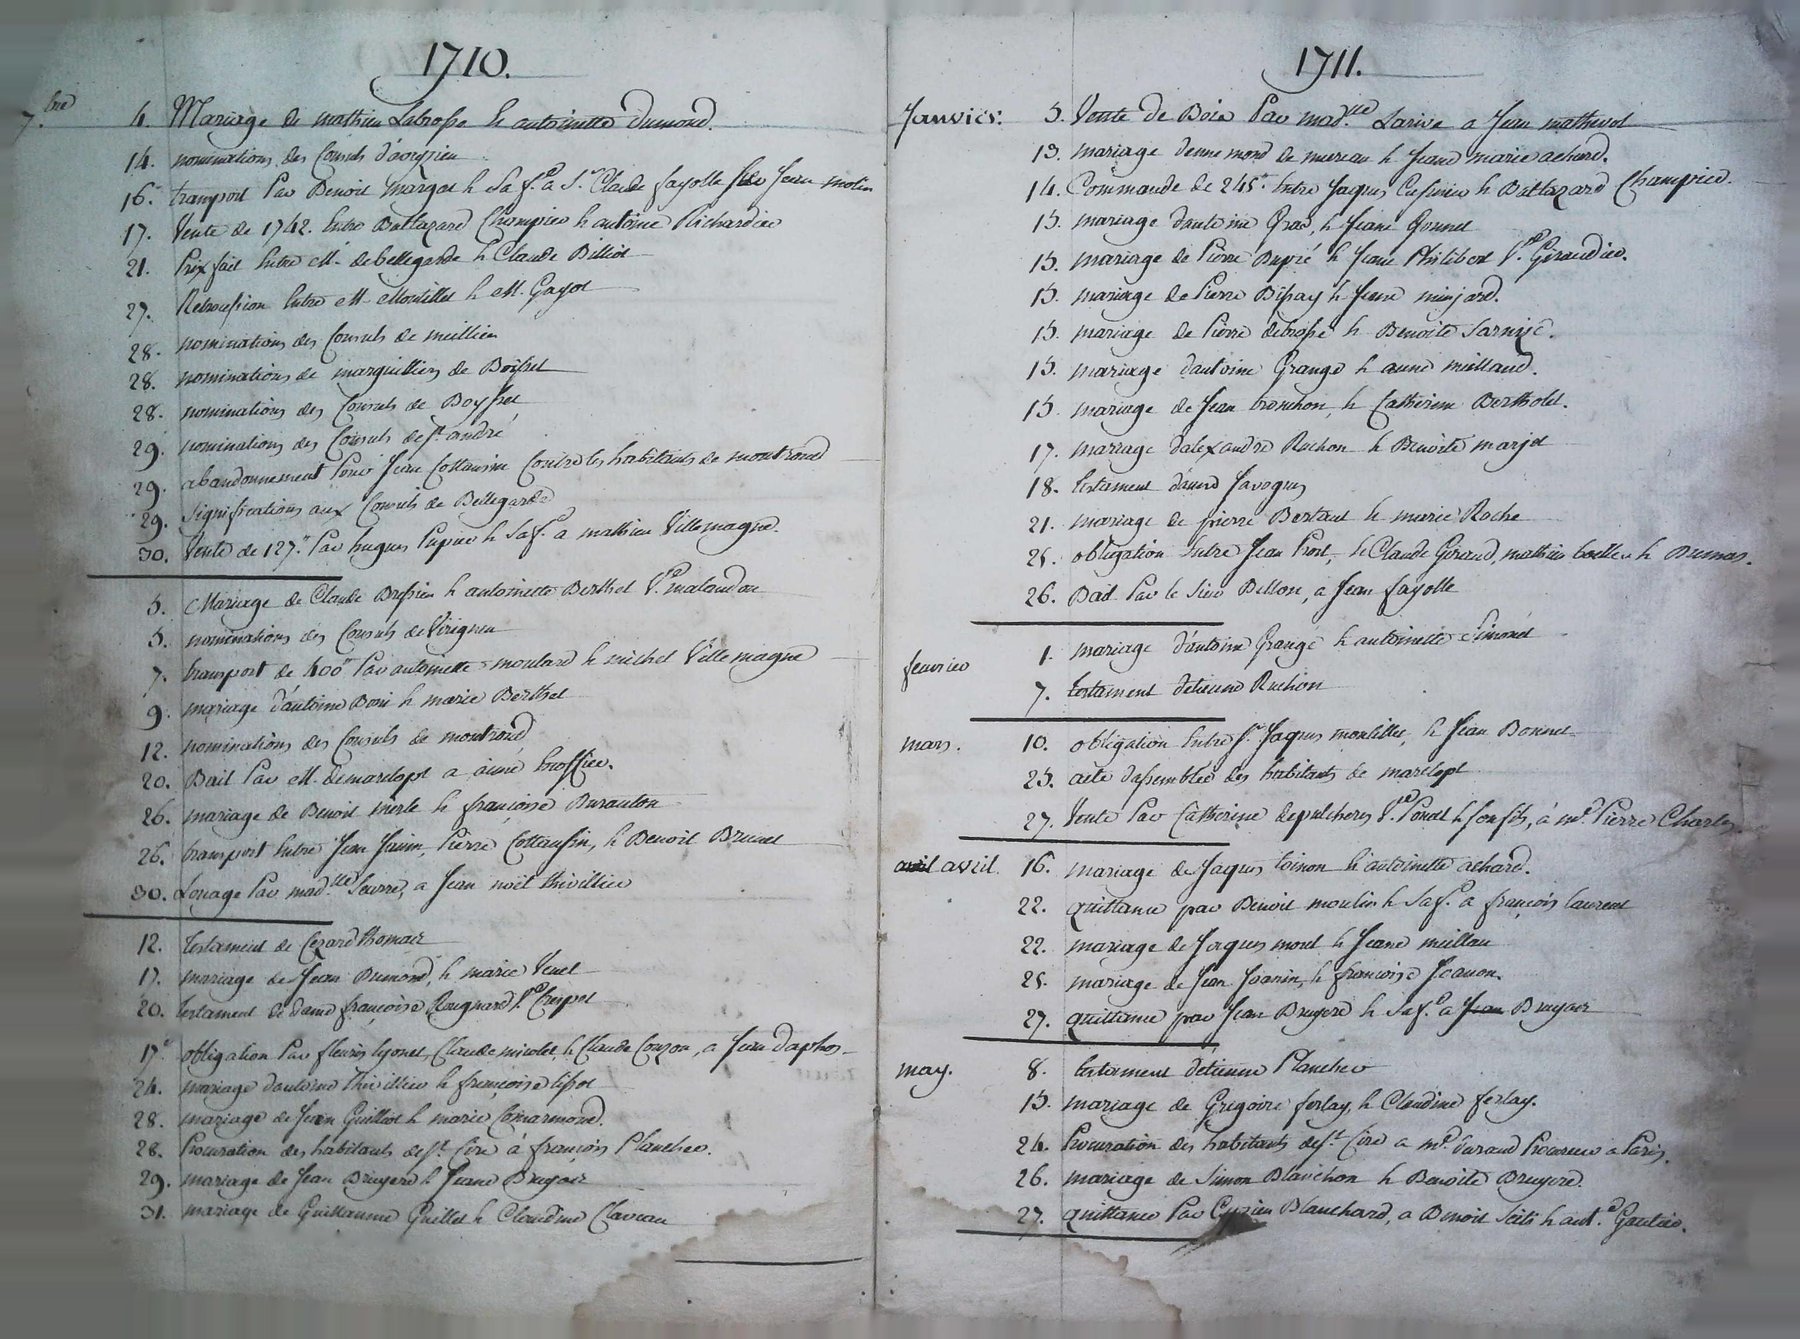 1710.
7.bre 4. Mariage de mathieu Labrosse & antoinette dumond.
14. nominations des Consuls d'
16. transport Par Benoit margot & Sa f.e a S.r Claude fayolle Jean molin
17. Vente de 1742. Entre Baltazard Champier & antoine Richardier
21. Prix fait Entre M. de bellegarde & Claude Billiot
27. Retrocession Entre M. Montillet & M. Gayot
28. nominations des Consuls de meillieu
28. nominations de marguilliers de Boisset
28. nominations des Consuls de Boysset
29. nominations des Consuls de St. andré
29. abandonnement Pour Jean Cottancin Contre les habitants de montrond
29. Significations aux Consuls de Bellegarde
30. Vente de 127.tt Par hugues Pupier & Sa f. a mathieu Villemagne.
5. Mariage de Claude Bressieu & antoinette Berthet V.ve
5. nominations des Consuls de Virigneu
7. transport de 400tt Par antoinette moulard & michel Villemagne
9. mariage d'antoine & marie Berthet
12. nominations des Consuls de montrond
20. Bail Par M. demarclopt a aimé
26. mariage de Benoit merle & françoise Duranton
26. transport Entre Jean Janin, Pierre Cottansin, & Benoit Brunel
30. Louage Par mad.lle a Jean noël thivillier
12. testament de Cezard thomaz
17. mariage de Jean Dumond, & marie Venet
20. testament de dame françoise V.ve
17. obligation Par fleuris lyonet, Claude nicolet, & Claude Couzon, a Jean
24. mariage d'antoine thivillier & françoise
28. mariage de Jean Guillot & marie Comarmond.
28. Procuration des habitants de St. Cire à françois Planchet.
29. mariage de Jean Bruyere & Jeane Bruyaz
31. mariage de Guillaume Guillet & Claudine Claveau
1711.
Janvier. 5. Vente de Bois Par mad.lle Larive a Jean mathevot
13. mariage d'ennemond de mureau & Jeane marie achard.
14. Commande de 245tt Entre Jaques & Baltazard Champier.
15. mariage d'antoine & Jeane Gonnet
15. mariage de Pierre Dupré & Jeane Philibert V.ve Giraudier.
15. mariage de Pierre Bissay & Jeane minjard.
15. mariage de Pierre debrosse & Benoite
15. mariage d'antoine Grange & anne meilland.
15. mariage de Jean tronchon & Catherine Bertholet.
17. mariage d'alexandre Rochon & Benoite marjet
18. testament d'aimé Javogues
21. mariage de pierre Bertaut & marie Roche
25. obligation Entre Jean Prost, & Claude Giraud, mathieu & Dumas.
26. Bail Par le Sieur Billon, a Jean fayolle
fevrier 1. mariage d'antoine Grange & antoinette Simonet
7. testament d'etienne Rochon
mars. 10. obligation Entre S.r Jaques montillet, & Jean Bonnet
25. acte d'assemblée des habitants de marclopt
27. Vente Par Catherine V.ve Ponet & son fils, à m.e Pierre Charles
avril avril. 16. mariage de Jaques toinon & antoinette achard.
22. quittance par Benoit moulin & Sa f. a françois laurent
22. mariage de Jaques morel & Jeane meillau
25. mariage de Jean Joanin, & françoise Jeanon.
27. quittance par Jean Bruyere & Sa f.e a Jean Bruyaz
may. 8. testament d'etienne Planchet
15. mariage de Gregoire ferlay, & Claudine ferlay.
24. Procuration des habitants de St. Cire a m.e durand Procureur a Paris.
26. mariage de Simon Blanchon & Benoite Bruyere.
27. quittance Par Blanchard, a Benoit & ant.e Gautier.